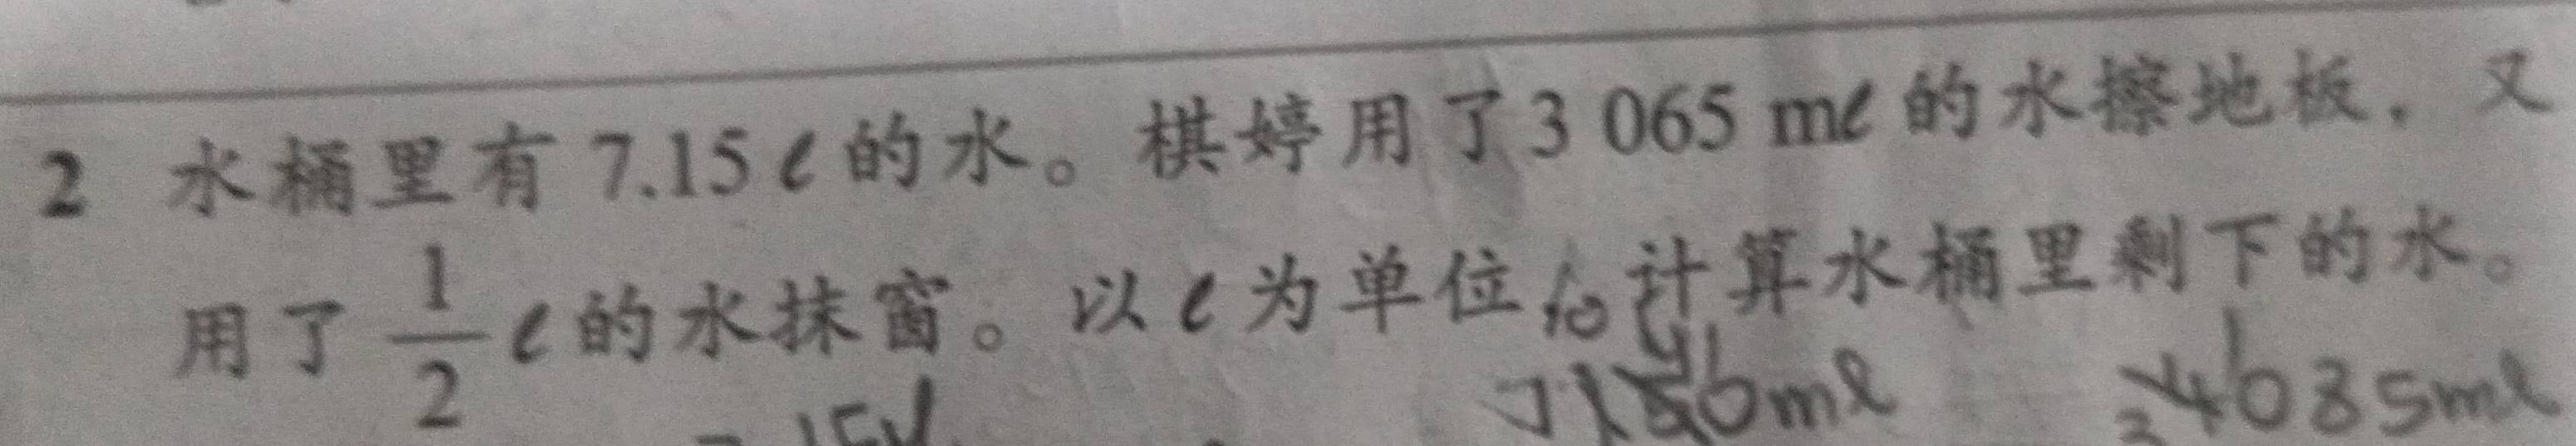 2 水桶里有 7.15 ℓ 的水。棋婷用了3 065 mℓ 的水擦地板，又
用了 1/2 ℓ 的水抹窗。以 ℓ 为单位，计算水桶里剩下的水。
10
4085ml